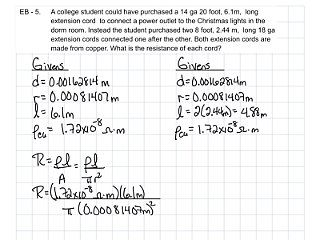 EB - 5. A college student could have purchased a 14 ga 20 foot, 6.1m, long
extension cord to connect a power outlet to the Christmas lights in the
dorm room. Instead the student purchased two 8 foot, 2.44 m, long 18 ga
extension cords connected one after the other. Both extension cords are
made from copper. What is the resistance of each cord?
Givens
d=0.00162814m
r=0.00081407m
l=6.1m
ρcu = 1.72x10⁻⁸ Ω·m
Givens
d=0.00162814m
r=0.00081407m
l=2(2.44m)=4.88m
ρcu=1.72x10⁻⁸ Ω·m
R=ρl/A=ρl/πr²
R=(1.72x10⁻⁸ Ω·m)(6.1m)
π(0.00081407m)²